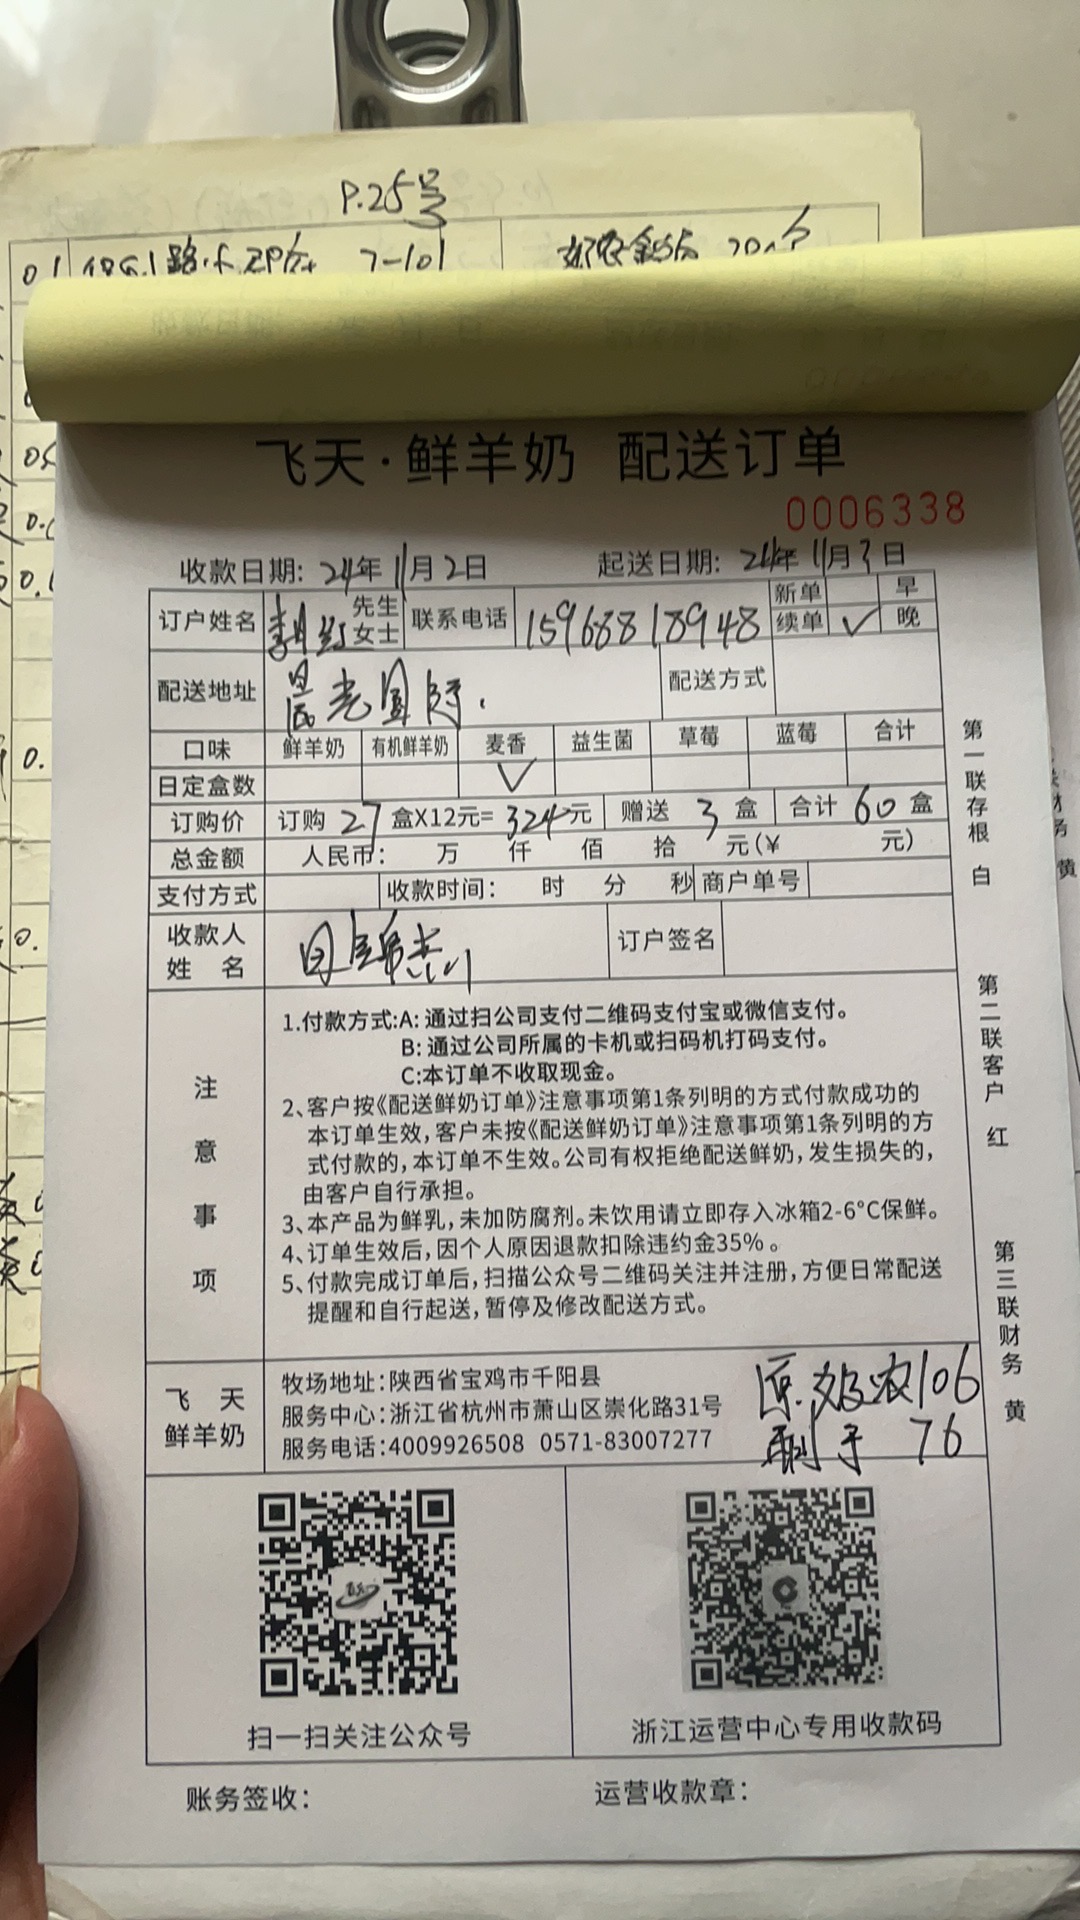 P.25号
01 7-101
飞天·鲜羊奶 配送订单
0006338
收款日期: 24年11月2日 起送日期: 24年11月3日
订户姓名 李月红 先生 女士 联系电话 15968818948 新单 续单 ✓ 早 晚
配送地址 晨光国际. 配送方式
口味 鲜羊奶 有机鲜羊奶 麦香 益生菌 草莓 蓝莓 合计
日定盒数 ✓
订购价 订购 27 盒X12元= 324元 赠送 3 盒 合计 60 盒
总金额 人民币: 万 仟 佰 拾 元(¥ 元)
支付方式 收款时间: 时 分 秒 商户单号
收款人
姓 名 订户签名
注意事项
1.付款方式:A: 通过扫公司支付二维码支付宝或微信支付。
B: 通过公司所属的卡机或扫码机打码支付。
C:本订单不收取现金。
2、客户按《配送鲜奶订单》注意事项第1条列明的方式付款成功的
本订单生效,客户未按《配送鲜奶订单》注意事项第1条列明的方
式付款的,本订单不生效。公司有权拒绝配送鲜奶,发生损失的,
由客户自行承担。
3、本产品为鲜乳,未加防腐剂。未饮用请立即存入冰箱2-6°C保鲜。
4、订单生效后,因个人原因退款扣除违约金35%。
5、付款完成订单后,扫描公众号二维码关注并注册,方便日常配送
提醒和自行起送,暂停及修改配送方式。
飞 天
鲜羊奶
牧场地址:陕西省宝鸡市千阳县
服务中心:浙江省杭州市萧山区崇化路31号
服务电话:4009926508 0571-83007277
106
76
扫一扫关注公众号
浙江运营中心专用收款码
账务签收: 运营收款章:
第一联存根 白
第二联客户 红
第三联财务 黄